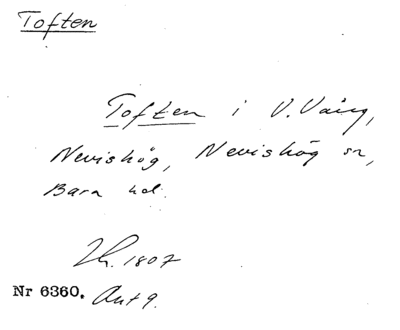 Toften
Toften i V. Vång,
Nevishög, Nevishög sn,
Bara hd.
1807
Nr 6360. Ant 9.